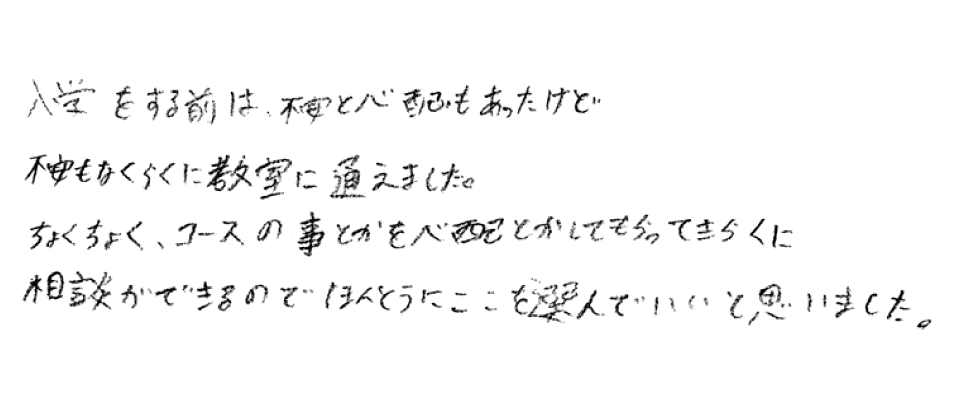 入学をする前は、不安と心配もあったけど
不安もなくらくに教室に通えました。
ちょくちょく、コースの事とかを心配とかしてもらってきらくに
相談ができるのでほんとうにここを選んでいいと思いました。